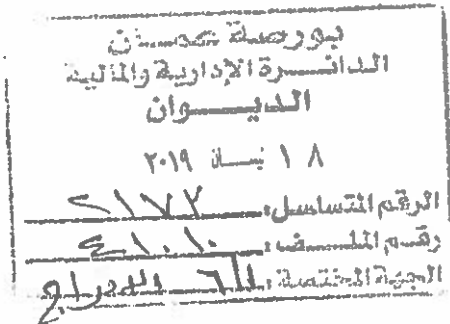 بورصة عمان
الدائرة الإدارية والمالية
الديوان
١٨ نيسان ٢٠١٩
الرقم المتسلسل: ٢١٧٢
رقم الملف: ٤١٠١٠
الجهة المختصة: الإدراج